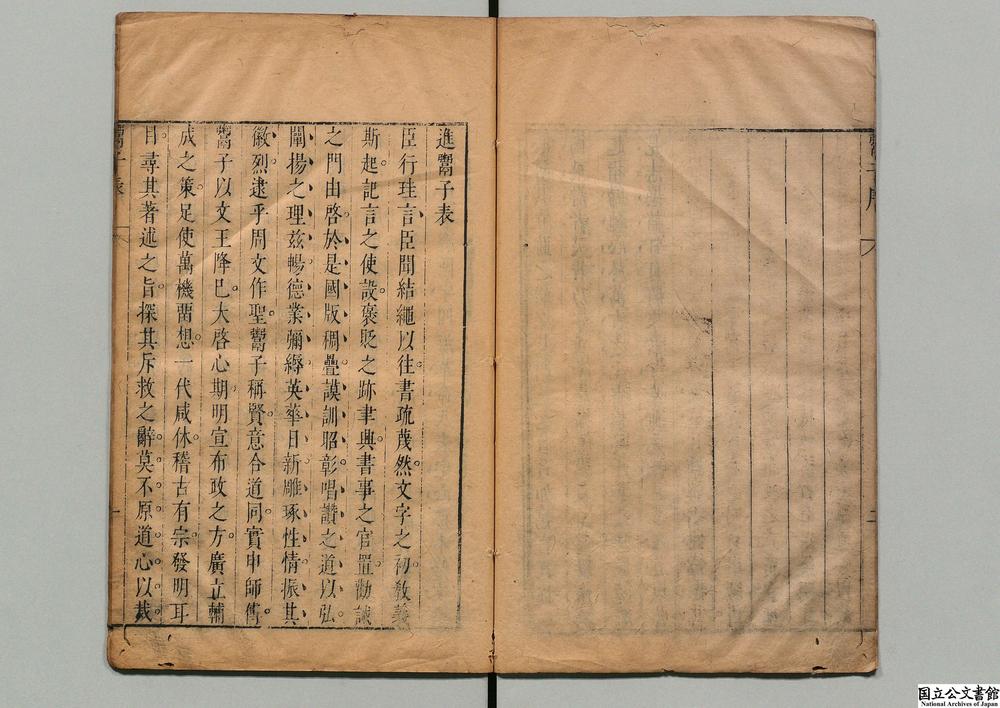 鬻子序
二
進鬻子表
臣行珪言臣聞結繩以往書疏蔑然文字之初敎義
斯起記言之使設褒貶之跡聿興書事之官置勸誡
之門由啓於是國版稠疊謨訓昭彰唱讚之道以弘
闡揚之理玆暢德業彌縟英華日新雕琢性情振其
徽烈逮乎周文作聖鬻子稱賢意合道同實申師傅
鬻子以文王降巳大啓心期明宣布政之方廣立輔
成之策足使萬機畱想一代咸休稽古有宗發明耳
目尋其著述之旨探其斥救之辭莫不原道心以裁
鬻子表
一
国立公文書館
National Archives of Japan